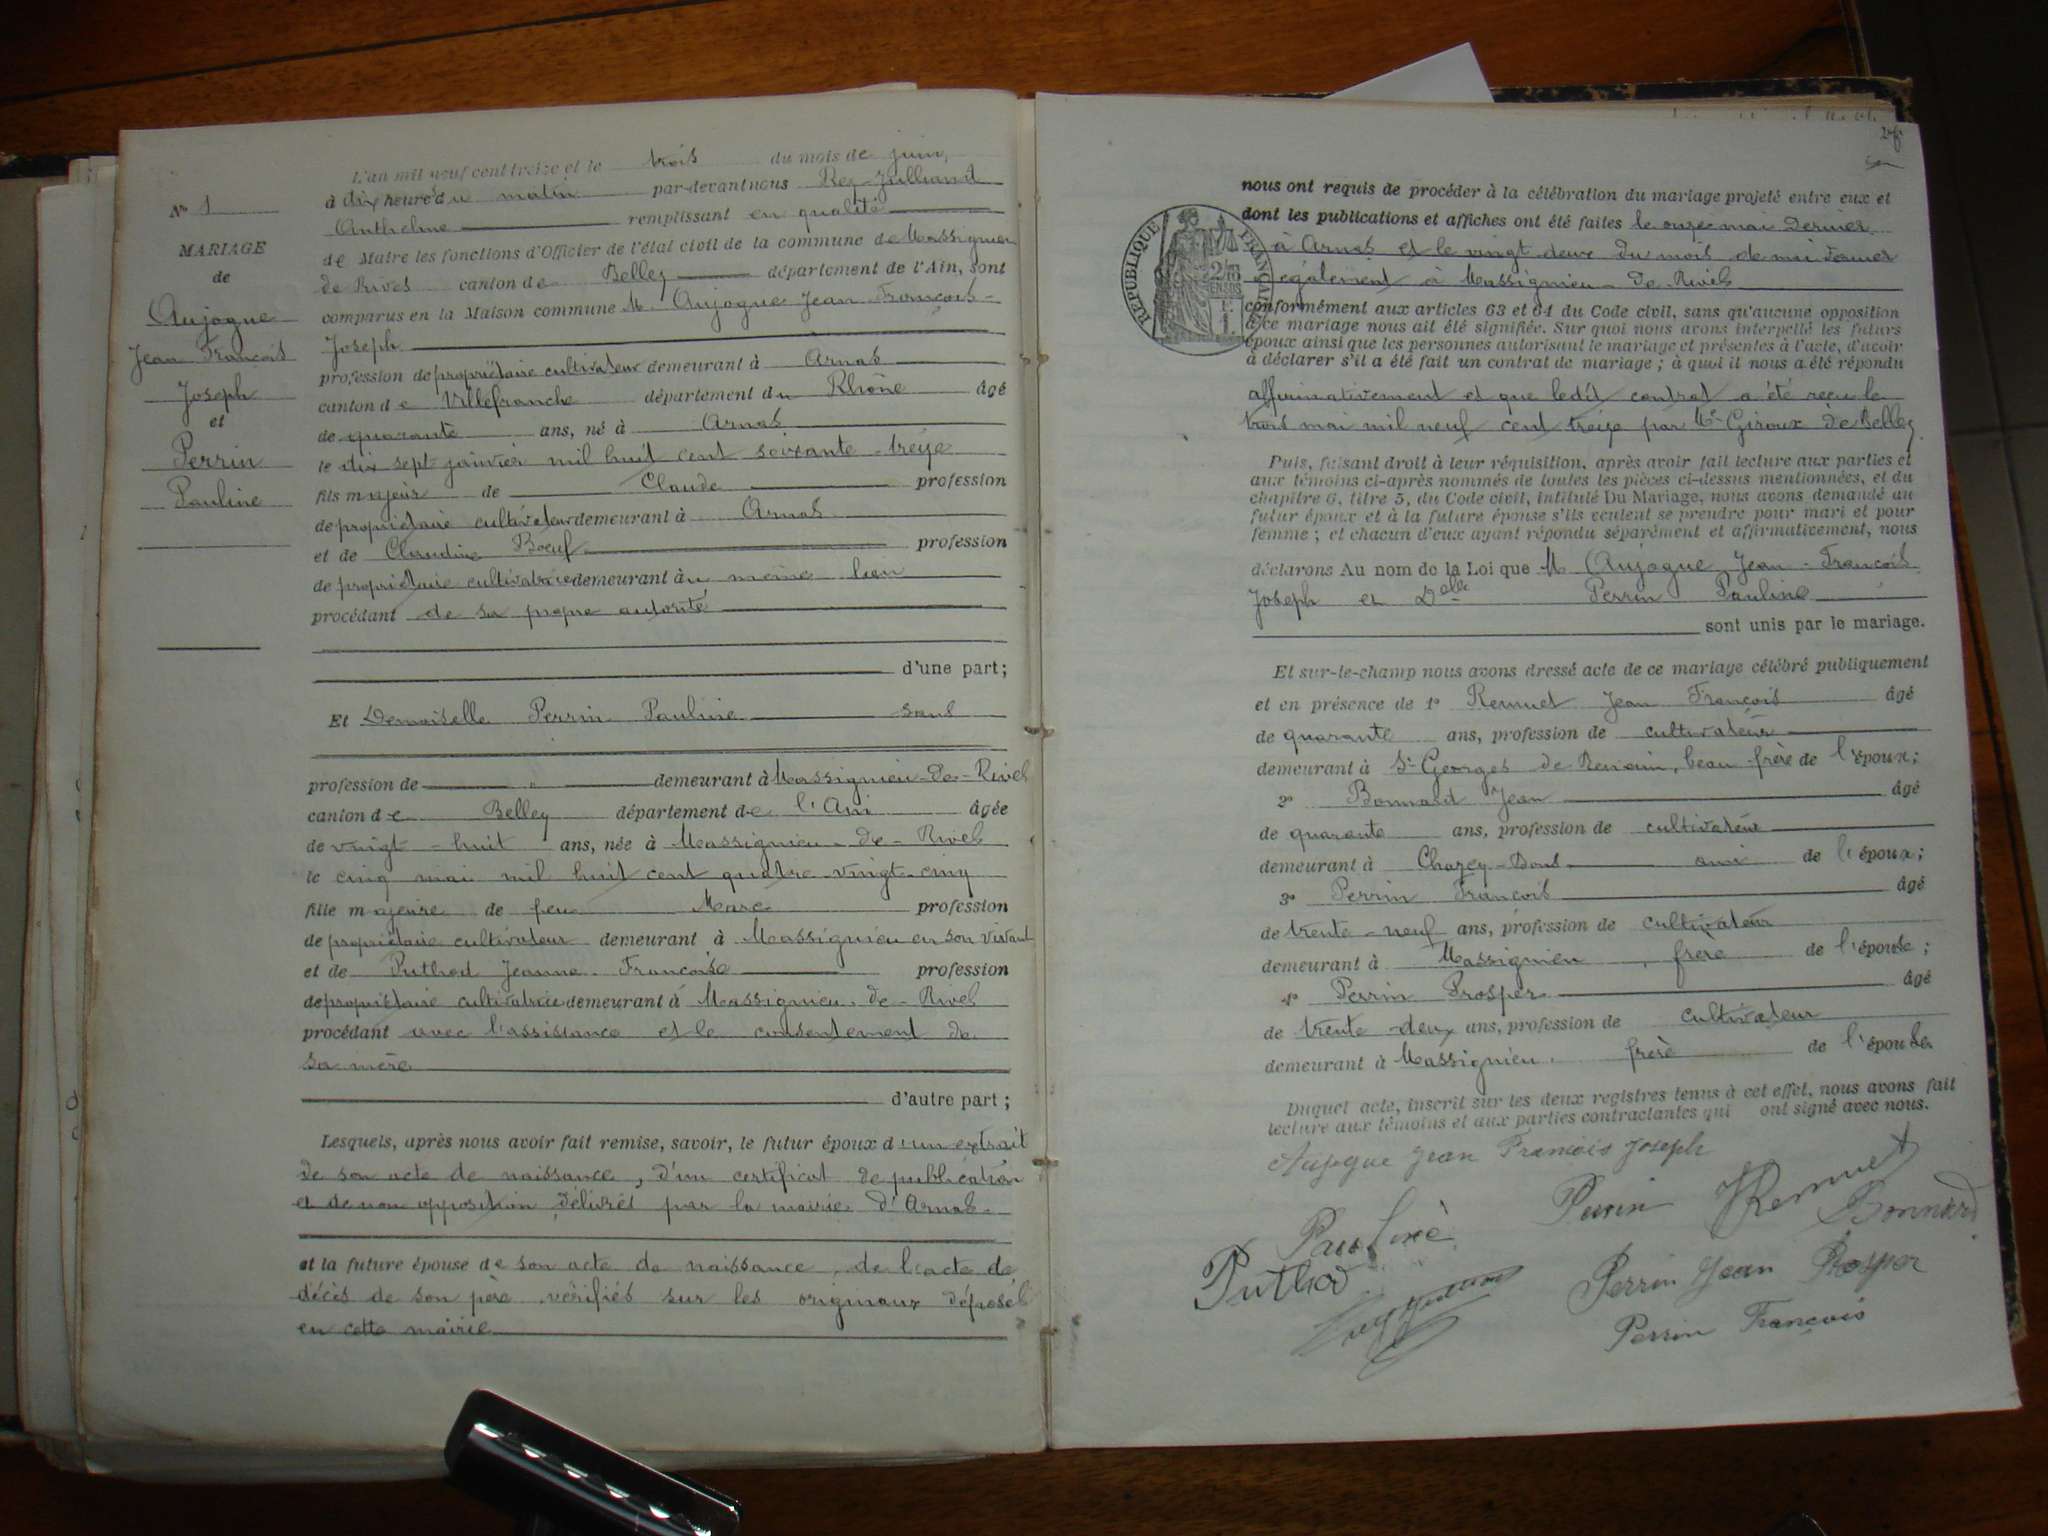 N° 1
MARIAGE
de
Aujogue
Jean François
Joseph
et
Perrin
Pauline
L'an mil neuf cent treize et le trois du mois de juin,
à dix heures du matin par-devant nous Rey-Julliand
Anthelme remplissant en qualité
de Maire les fonctions d'Officier de l'état civil de la commune de Massignieu
de Rives canton de Belley département de l'Ain, sont
comparus en la Maison commune M. Aujogue Jean François
Joseph
profession de propriétaire cultivateur demeurant à Arnas
canton de Villefranche département du Rhône âgé
de quarante ans, né à Arnas
le dix sept janvier mil huit cent soixante-treize
fils majeur de Claude profession
de propriétaire cultivateur demeurant à Arnas
et de Claudine Boeuf profession
de propriétaire cultivatrice demeurant au même lieu
procédant de sa propre autorité
d'une part;
Et Demoiselle Perrin Pauline sans
profession de " demeurant à Massignieu-de-Rives
canton de Belley département de l'Ain âgée
de vingt-huit ans, née à Massignieu-de-Rives
le cinq mai mil huit cent quatre-vingt-cinq
fille majeure de feu Marc profession
de propriétaire cultivateur demeurant à Massignieu en son vivant
et de Puthod Jeanne-Françoise profession
de propriétaire cultivatrice demeurant à Massignieu-de-Rives
procédant avec l'assistance et le consentement de
sa mère
d'autre part;
Lesquels, après nous avoir fait remise, savoir, le futur époux d'un extrait
de son acte de naissance, d'un certificat de publication
et de non opposition délivrés par la mairie d'Arnas.
et la future épouse de son acte de naissance, de l'acte de
décès de son père vérifiés sur les originaux déposés
en cette mairie
nous ont requis de procéder à la célébration du mariage projeté entre eux et
dont les publications et affiches ont été faites le onze mai dernier
à Arnas et le vingt deux du mois de mai dernier
également à Massignieu-de-Rives
RÉPUBLIQUE FRANÇAISE
conformément aux articles 63 et 64 du Code civil, sans qu'aucune opposition
à ce mariage nous ait été signifiée. Sur quoi nous avons interpellé les futurs
époux ainsi que les personnes autorisant le mariage et présentes à l'acte, d'avoir
à déclarer s'il a été fait un contrat de mariage; à quoi il nous a été répondu
affirmativement et que ledit contrat a été reçu le
trois mai mil neuf cent treize par Me Giroux de Belley
Puis, faisant droit à leur réquisition, après avoir fait lecture aux parties et
aux témoins ci-après nommés de toutes les pièces ci-dessus mentionnées, et du
chapitre 6, titre 5, du Code civil, intitulé Du Mariage, nous avons demandé au
futur époux et à la future épouse s'ils veulent se prendre pour mari et pour
femme; et chacun d'eux ayant répondu séparément et affirmativement, nous
déclarons Au nom de la Loi que M Aujogue Jean-François
Joseph et Delle Perrin Pauline
sont unis par le mariage.
Et sur-le-champ nous avons dressé acte de ce mariage célébré publiquement
et en présence de 1° Remuet Jean François âgé
de quarante ans, profession de cultivateur
demeurant à St Georges de Reneins, beau-frère de l'époux;
2° Bonnard Jean âgé
de quarante ans, profession de cultivateur
demeurant à Chazey-Bons ami de l'époux;
3° Perrin François âgé
de trente-neuf ans, profession de cultivateur
demeurant à Massignieu, frère de l'épouse;
4° Perrin Prosper âgé
de trente-deux ans, profession de cultivateur
demeurant à Massignieu, frère de l'épouse
Duquel acte, inscrit sur les deux registres tenus à cet effet, nous avons fait
lecture aux témoins et aux parties contractantes qui ont signé avec nous.
Aujogue Jean François Joseph
Perrin JRemuet
Pauline Bonnard
Puthod
Perrin Jean Prosper
Perrin François